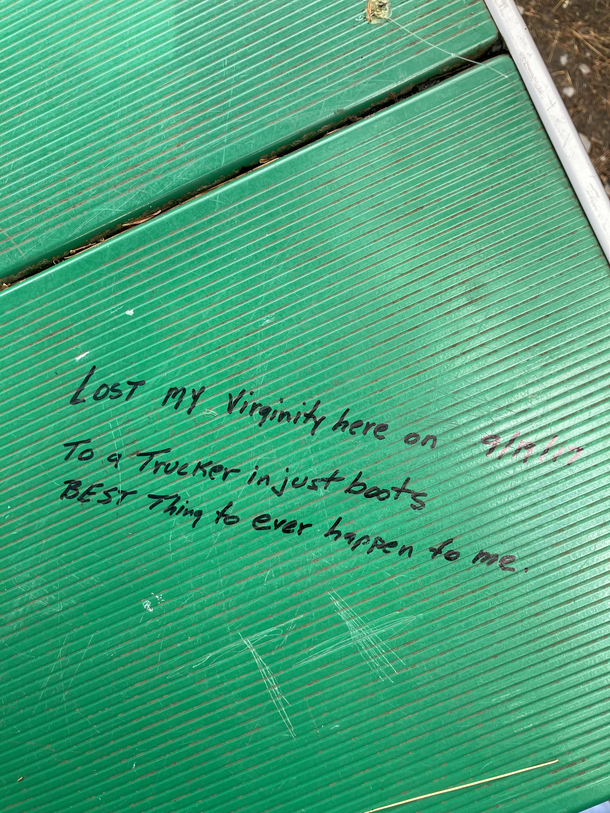 LOST my Virginity here on 9/19/17
To a Trucker in just boots
BEST Thing to ever happen to me.